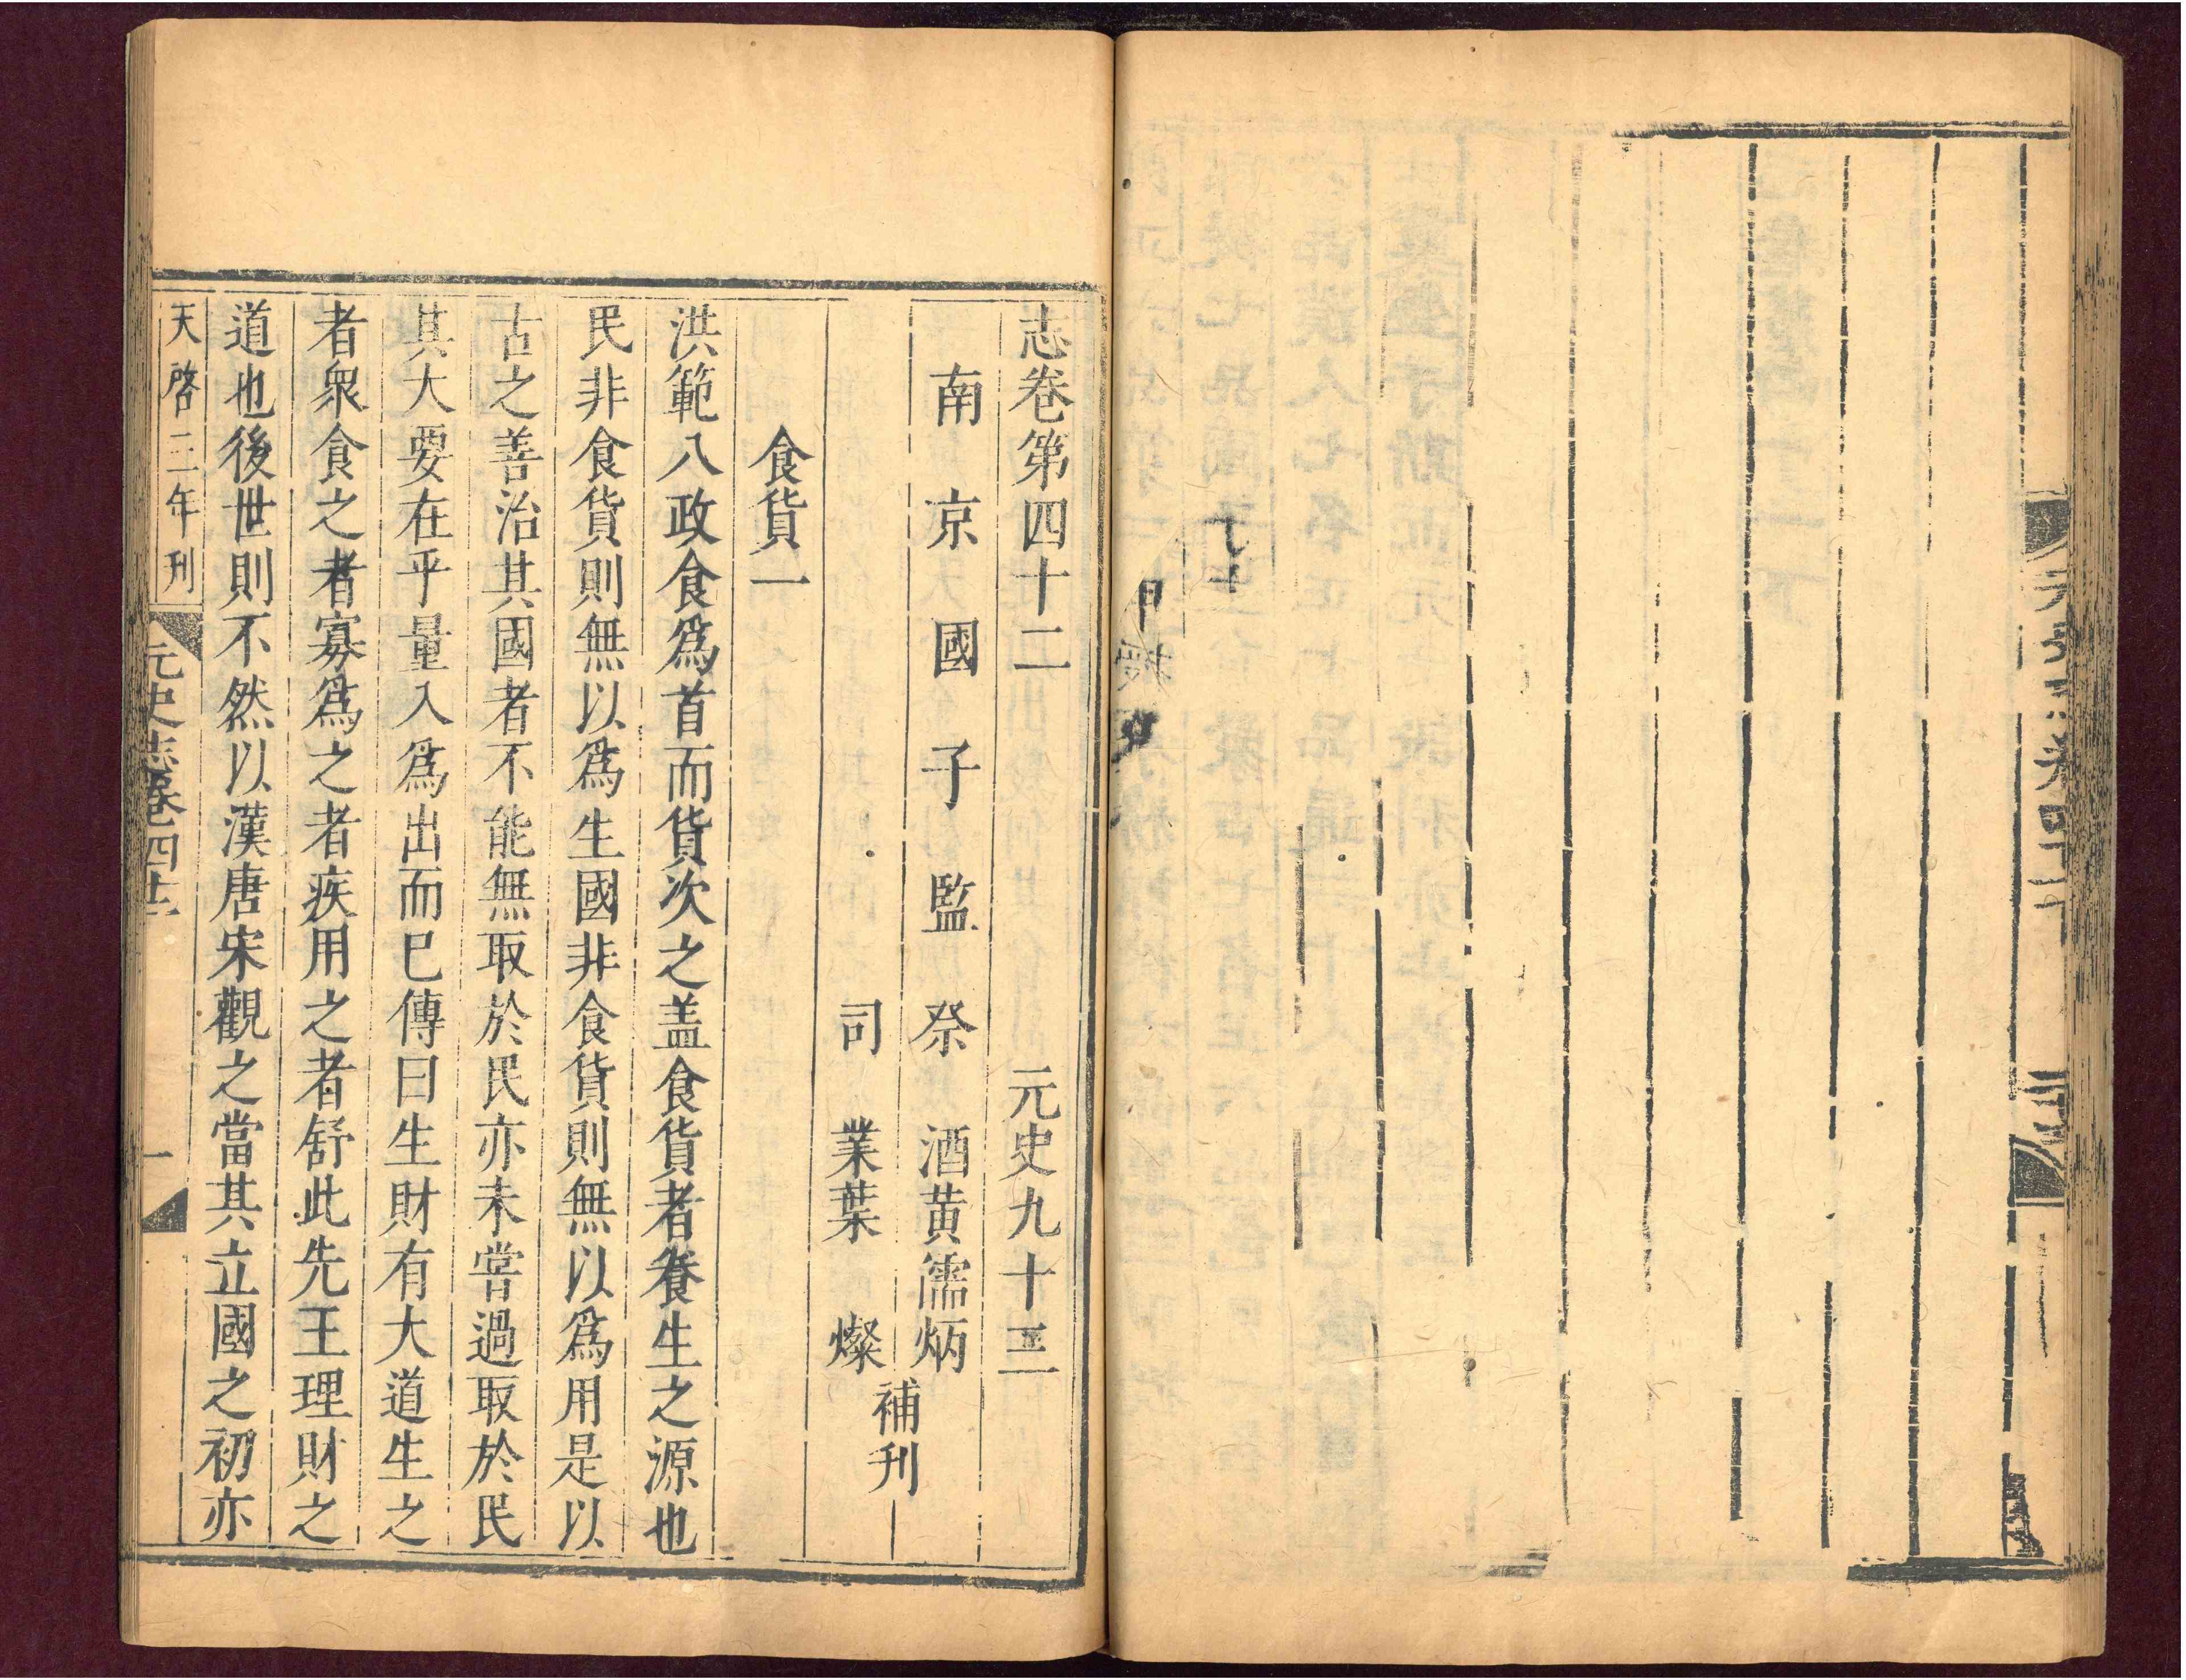 元史志卷四十一下
志卷第四十二　元史九十三
南京國子監祭酒黃儒炳
司業葉燦
補刊
食貨一
洪範八政食爲首而貨次之盖食貨者養生之源也
民非食貨則無以爲生國非食貨則無以爲用是以
古之善治其國者不能無取於民亦未嘗過取於民
其大要在乎量入爲出而巳傳曰生財有大道生之
者衆食之者寡爲之者疾用之者舒此先王理財之
道也後世則不然以漢唐宋觀之當其立國之初亦
天啓三年刊
元史志卷四十二
一